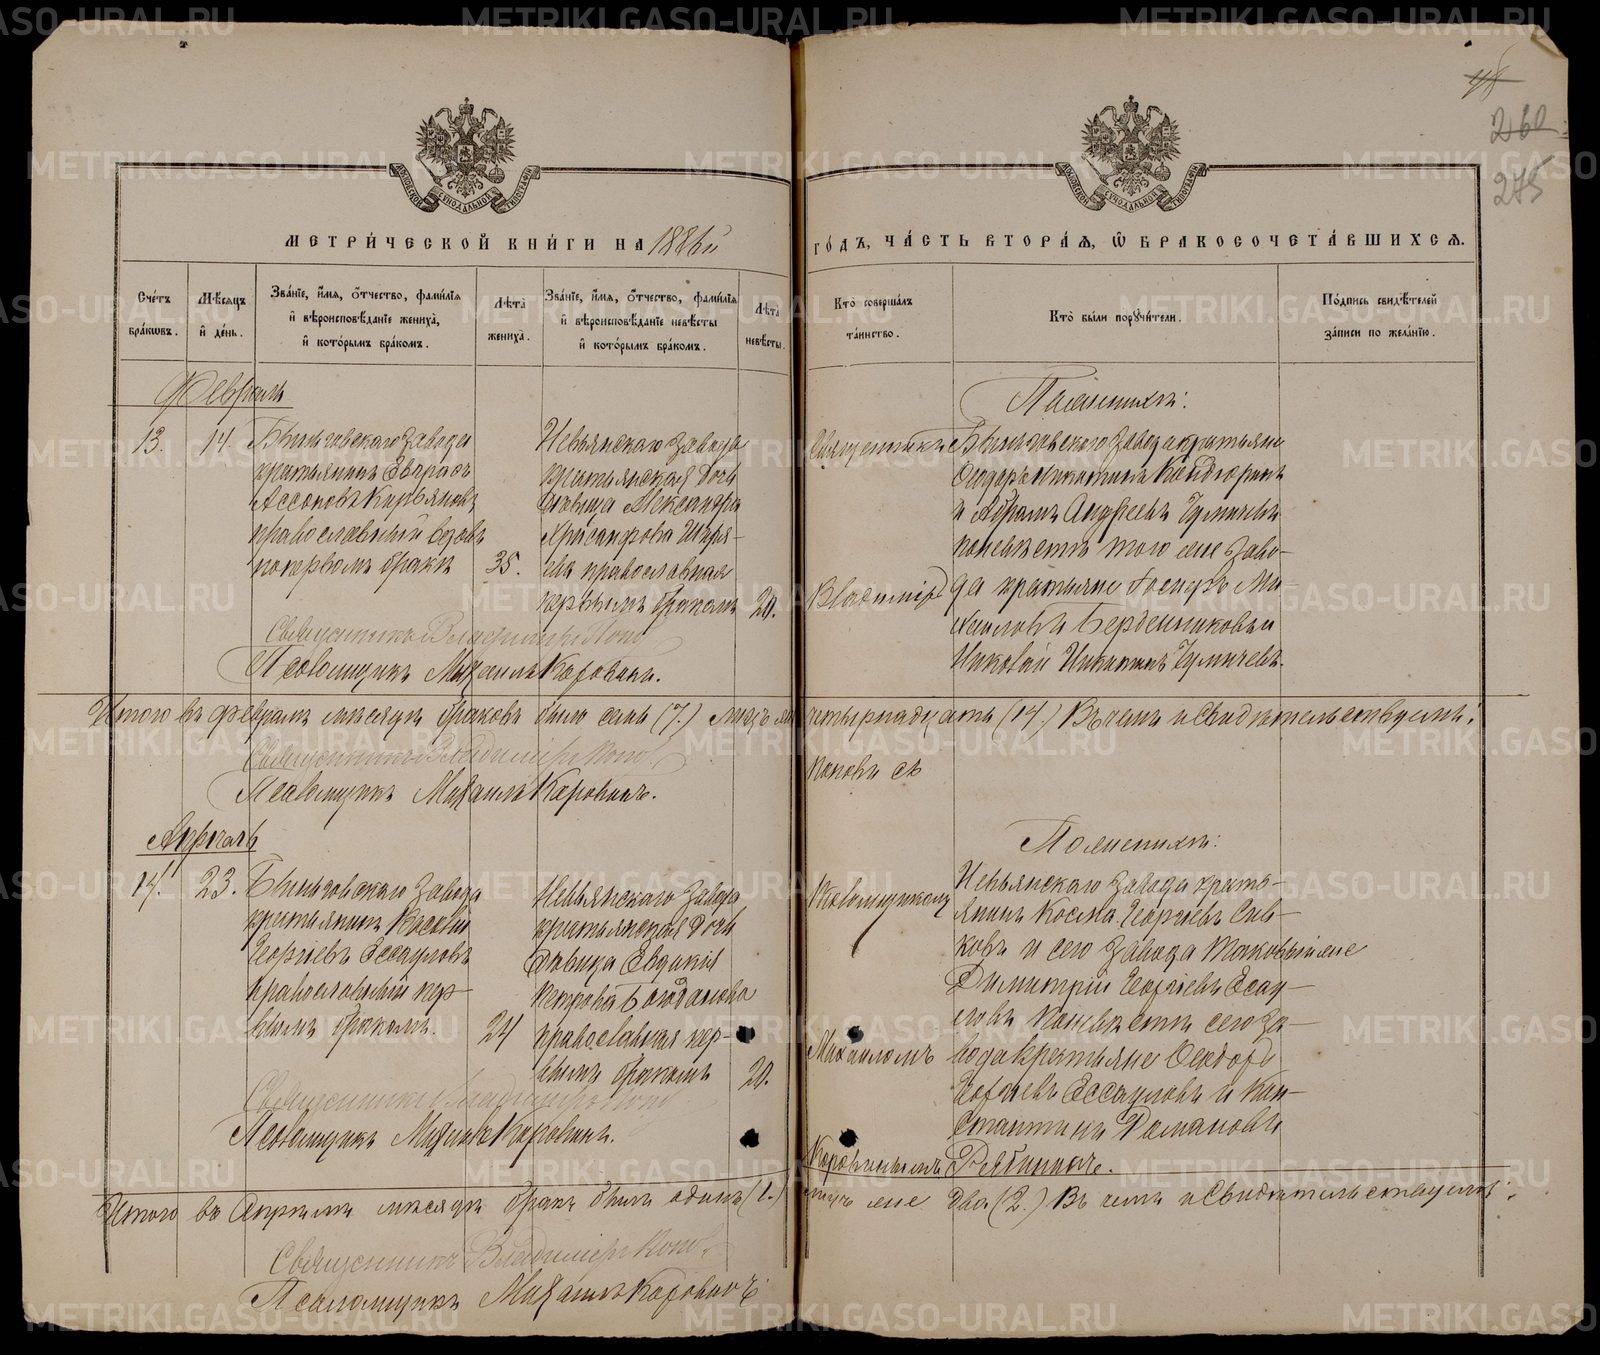 METRIKI.GASO-URAL.RU
МЕТРИ́ЧЕСКОЙ КНИ́ГИ НА 1886й
ГО́ДЪ, ЧА́СТЬ ВТОРА́Я, Ѽ БРАКОСОЧЕТА́ВШИХСЯ.
Сче́тъ бра́ковъ.
Мѣ́сяцъ и҆ де́нь.
Зва́нїе, и҆́мя, ѻ҆́тчество, фами́лїя
и҆ вѣроисповѣ́данїе жениха̀,
и҆ кото́рымъ бра́комъ.
Лѣ́та̀ жениха̀.
Зва́нїе, и҆́мя, ѻ҆́тчество, фами́лїя
и҆ вѣроисповѣ́данїе невѣ́сты
и҆ кото́рымъ бра́комъ.
Лѣ́та̀ невѣ́сты.
Кто̀ соверша́лъ та́инство.
Кто̀ бы́ли порꙋчи́тели.
По́дпись свидѣ́телей за́писи по жела́нїю.
260
275
Февраль
13.
14.
Быньговскаго завода
крестьянинъ
православный вдовъ
по первомъ бракѣ
35.
Невьянскаго завода
крестьянская дочь
дѣвица Александра
Хрисанфова
православная
первымъ бракомъ
20.
Священникъ
Владиміръ
По женихѣ:
Быньговскаго завода крестьяне
Ѳеодоръ Никитинъ
и Абрамъ Андреевъ
по невѣстѣ того же заво-
да крестьяне
хайловъ Бердениковъ и
Никитинъ
Священникъ Владиміръ Попо
Псаломщикъ Михаилъ Коровинъ.
Итого въ Февралѣ мѣсяцѣ браковъ было семь (7.) лицъ же
четырнадцать (14.) Въ чемъ и свидѣтельствуемъ:
Священникъ Владиміръ Попо
Поповъ съ
Псаломщикъ Михаилъ Коровинъ.
Апрѣль
14.
23.
Быньговскаго завода
крестьянинъ
Георгіевъ Ессауловъ
православный пер-
вымъ бракомъ.
24
Невьянскаго завода
крестьянская дочь
дѣвица Евдокія
Петрова Богданова
православная пер-
вымъ бракомъ
20.
Псаломщикомъ
Михаиломъ
Коровинымъ
По женихѣ:
Невьянскаго завода кресть-
янинъ Косма Георгіевъ Сив-
ковъ и сего завода таковый же
Димитрій Георгіевъ Есау-
ловъ по невѣстѣ сего за-
вода крестьяне Ѳеодоръ
Георгіевъ Ессауловъ и Кон-
стантинъ Романовъ
Рябининъ.
Священникъ Владиміръ Попо
Псаломщикъ Михаилъ Коровинъ.
Итого въ Апрѣлѣ мѣсяцѣ бракъ былъ одинъ (1.)
лицъ же два (2.) Въ чемъ и свидѣтельствуемъ:
Священникъ Владиміръ Попо
Псаломщикъ Михаилъ Коровинъ